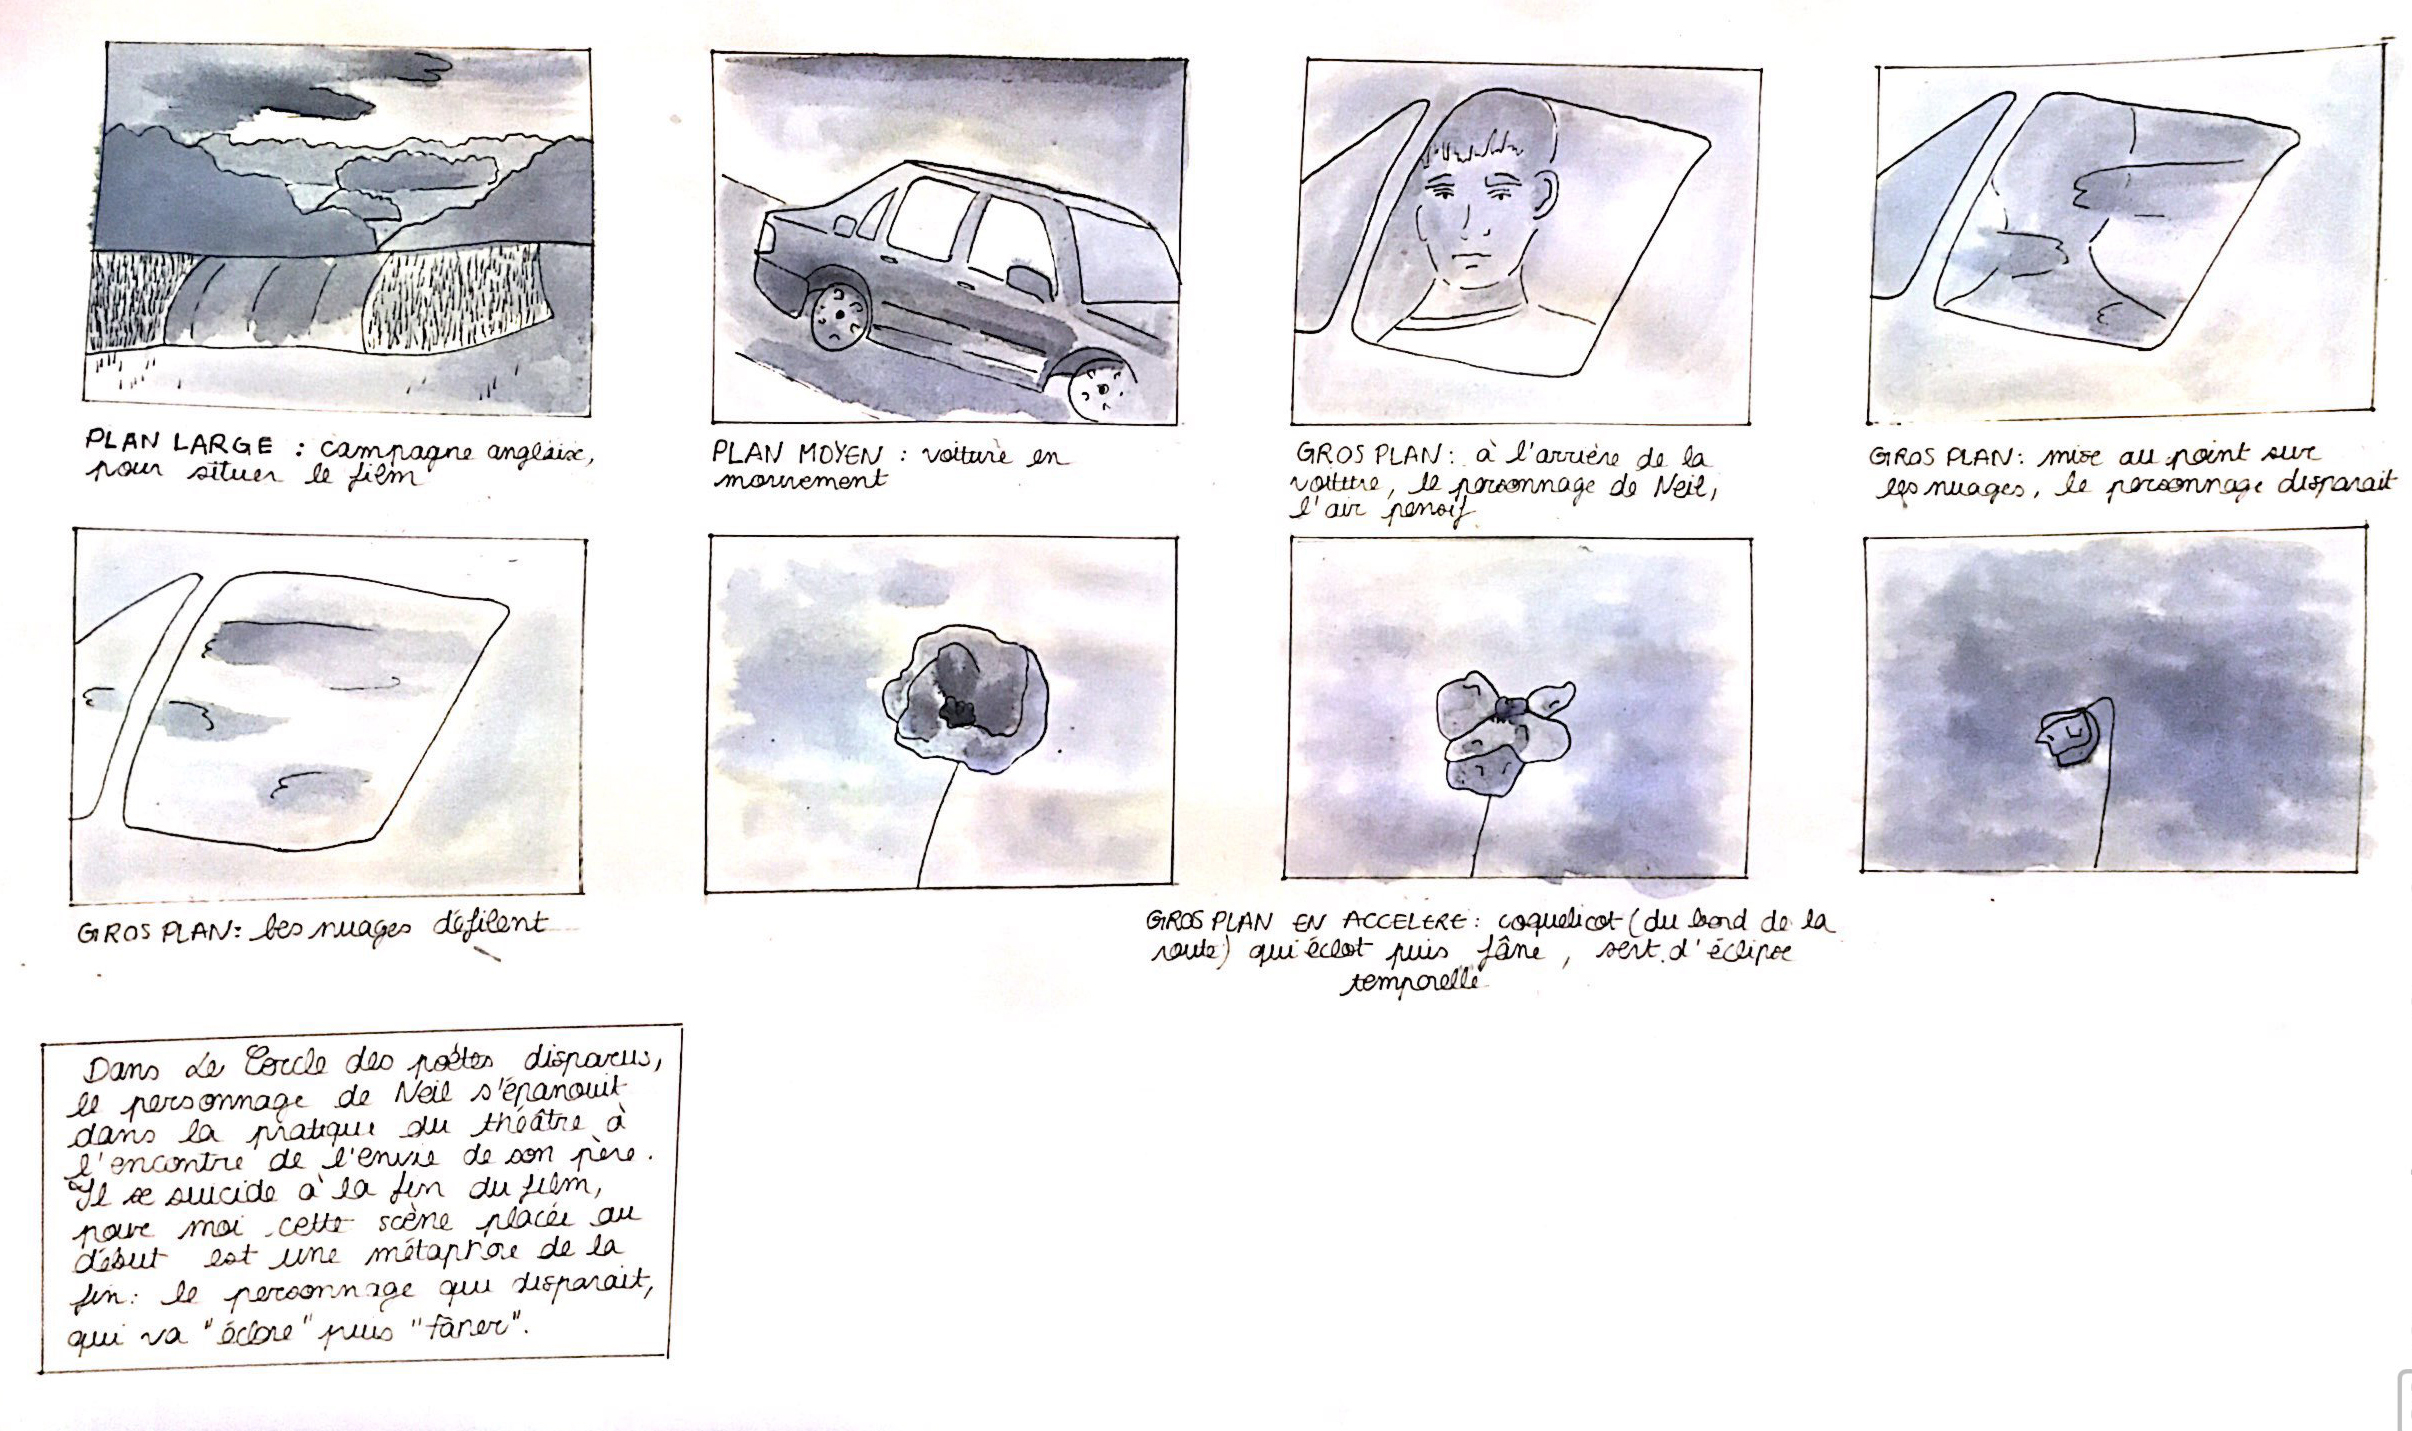 PLAN LARGE : campagne anglaise,
pour situer le film
PLAN MOYEN : voiture en
mouvement
GROS PLAN : à l'arrière de la
voiture, le personnage de Neil,
l'air pensif
GROS PLAN : mise au point sur
les nuages, le personnage disparait
GROS PLAN : les nuages défilent
GROS PLAN EN ACCELERE : coquelicot (du bord de la
route) qui éclot puis fâne, sert d'éclipse
temporelle
Dans Le Cercle des poètes disparus,
le personnage de Neil s'épanouit
dans la pratique du théâtre à
l'encontre de l'envie de son père.
Il se suicide à la fin du film,
pour moi cette scène placée au
début est une métaphore de la
fin : le personnage qui disparait,
qui va "éclore" puis "fâner".